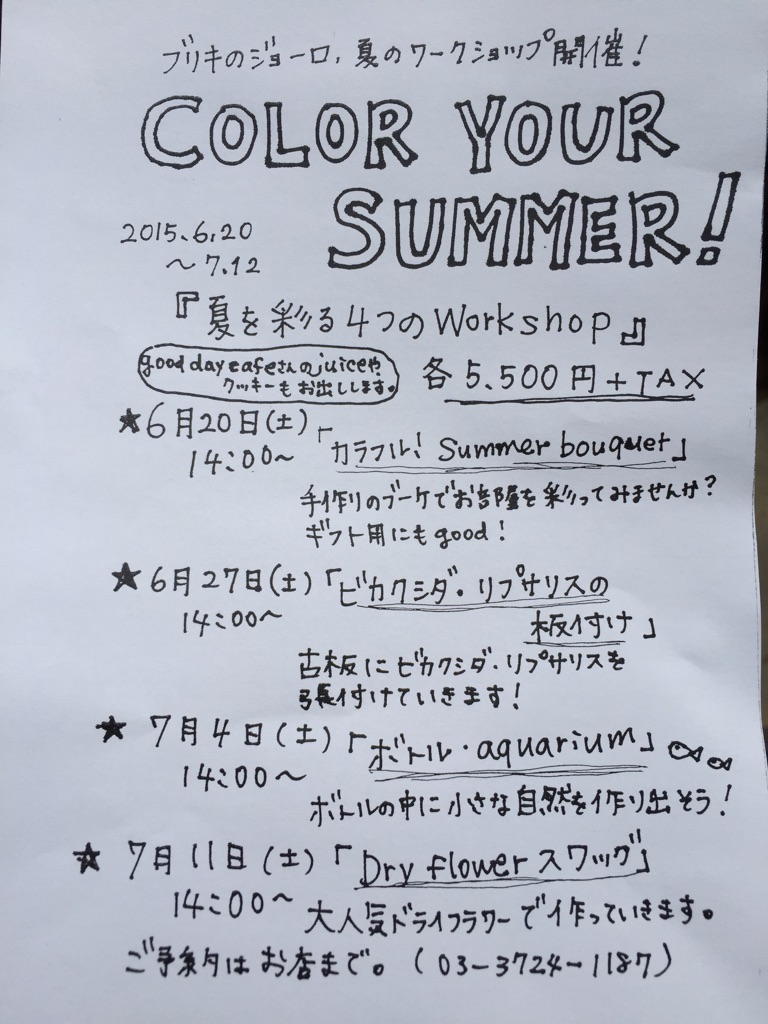 ブリキのジョーロ,夏のワークショップ開催!
COLOR YOUR
SUMMER!
2015.6.20
～7.12
『夏を彩る4つのWorkshop』
good day cafeさんのjuiceや
クッキーもお出しします。
各5.500円+TAX
★6月20日(土)「カラフル! Summer bouquet」
14:00～
手作りのブーケでお部屋を彩ってみませんか?
ギフト用にもgood!
★6月27日(土)「ビカクシダ・リプサリスの
14:00～ 板付け」
古板にビカクシダ・リプサリスを
張付けていきます!
★7月4日(土)「ボトル・aquarium」
14:00～
ボトルの中に小さな自然を作り出そう!
★7月11日(土)「Dry flowerスワッグ」
14:00～ 大人気ドライフラワーで作っていきます。
ご予約はお店まで。(03-3724-1187)